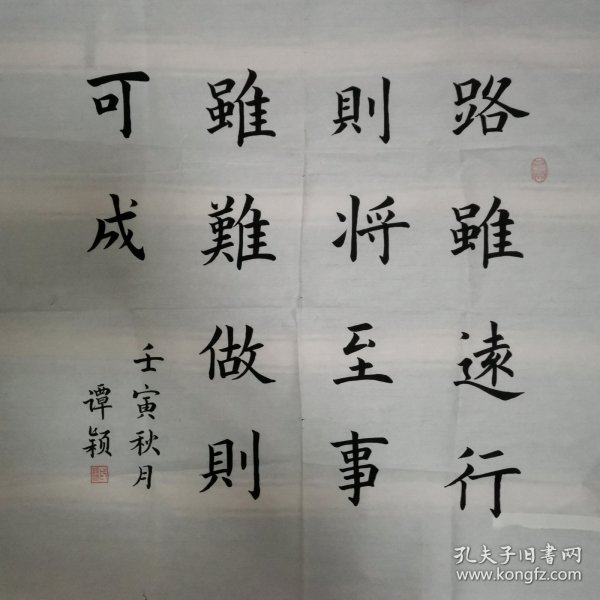 路雖遠行
則将至事
雖難做則
可成
壬寅秋月
谭颖
孔夫子旧書网
www.kongfz.com